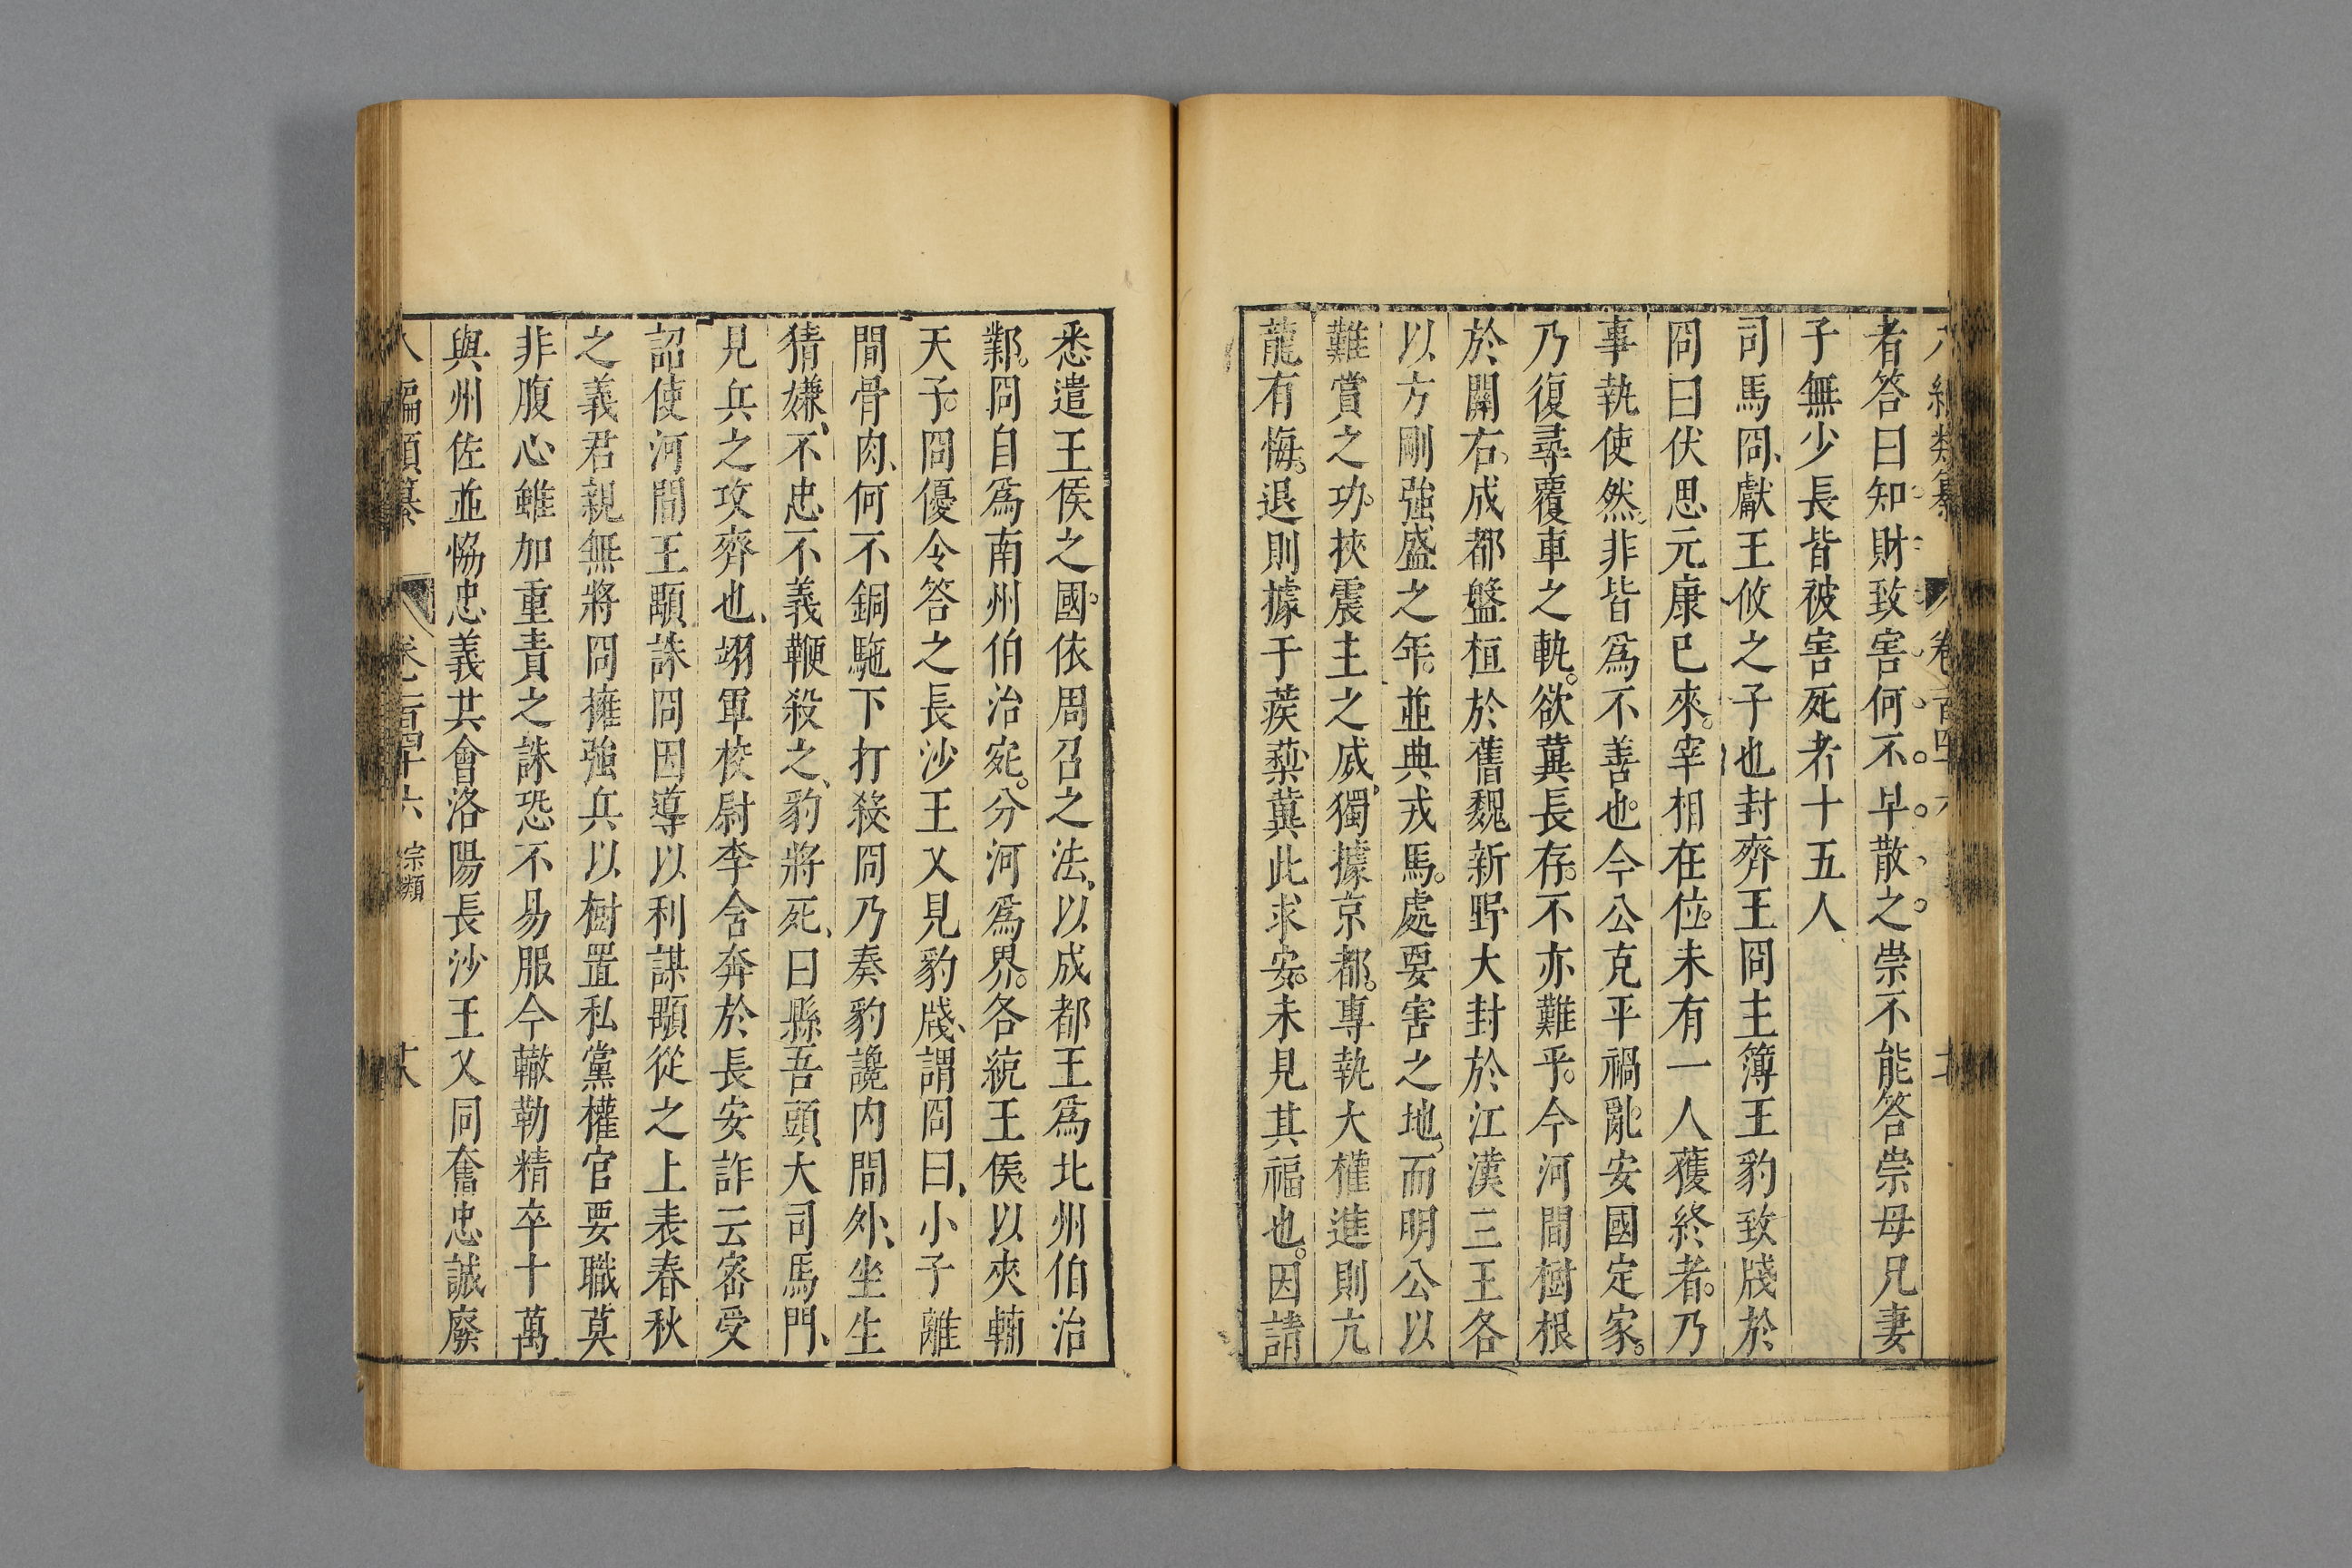 者答曰知財致害何不早散之崇不能答崇母兄妻
子無少長皆被害死者十五人
司馬冏獻王攸之子也封齊王冏主簿王豹致牋於
冏曰伏思元康已來宰相在位未有一人獲終者乃
事執使然非皆爲不善也今公克平禍亂安國定家
乃復尋覆車之軌欲冀長存不亦難乎今河間樹根
於關右成都盤桓於舊魏新野大封於江漢三王各
以方剛強盛之年並典戎馬處要害之地而明公以
難賞之功挾震主之威獨據京都專執大權進則亢
龍有悔退則據于蒺蔾冀此求安未見其福也因請
悉遣王侯之國依周召之法以成都王爲北州伯治
鄴冏自爲南州伯治宛分河爲界各統王侯以夾輔
天子冏優令答之長沙王乂見豹牋謂冏曰小子離
間骨肉何不銅駞下打殺冏乃奏豹讒内間外坐生
猜嫌不忠不義鞭殺之豹將死曰縣吾頭大司馬門
見兵之攻齊也翊軍校尉李含奔於長安詐云密受
詔使河間王顒誅冏因導以利謀顒從之上表春秋
之義君親無將冏擁強兵以樹置私黨權官要職莫
非腹心雖加重責之誅恐不易服今轍勒精卒十萬
與州佐並恊忠義共會洛陽長沙王乂同奮忠誠廢
八編類纂 卷一百四十六 宗類